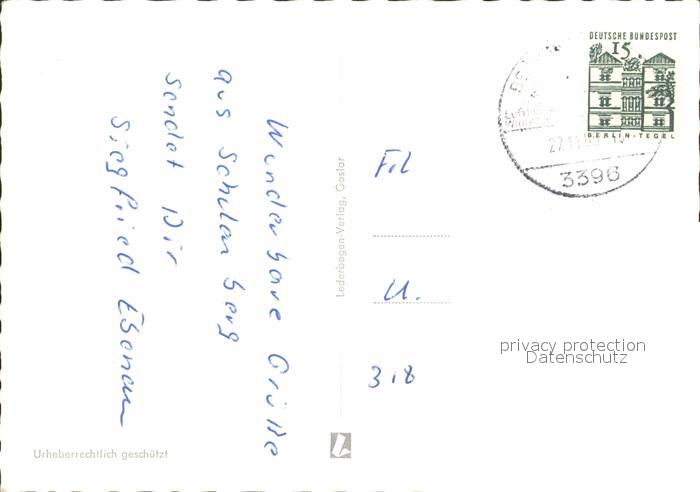 DEUTSCHE BUNDESPOST
15
BERLIN-TEGEL
27.11.
3396
Wunderbare Grüße
aus Schulenberg
sendet Dir
Siegfried
Lederbogen-Verlag, Goslar
Frl
U.
318
privacy protection
Datenschutz
Urheberrechtlich geschützt